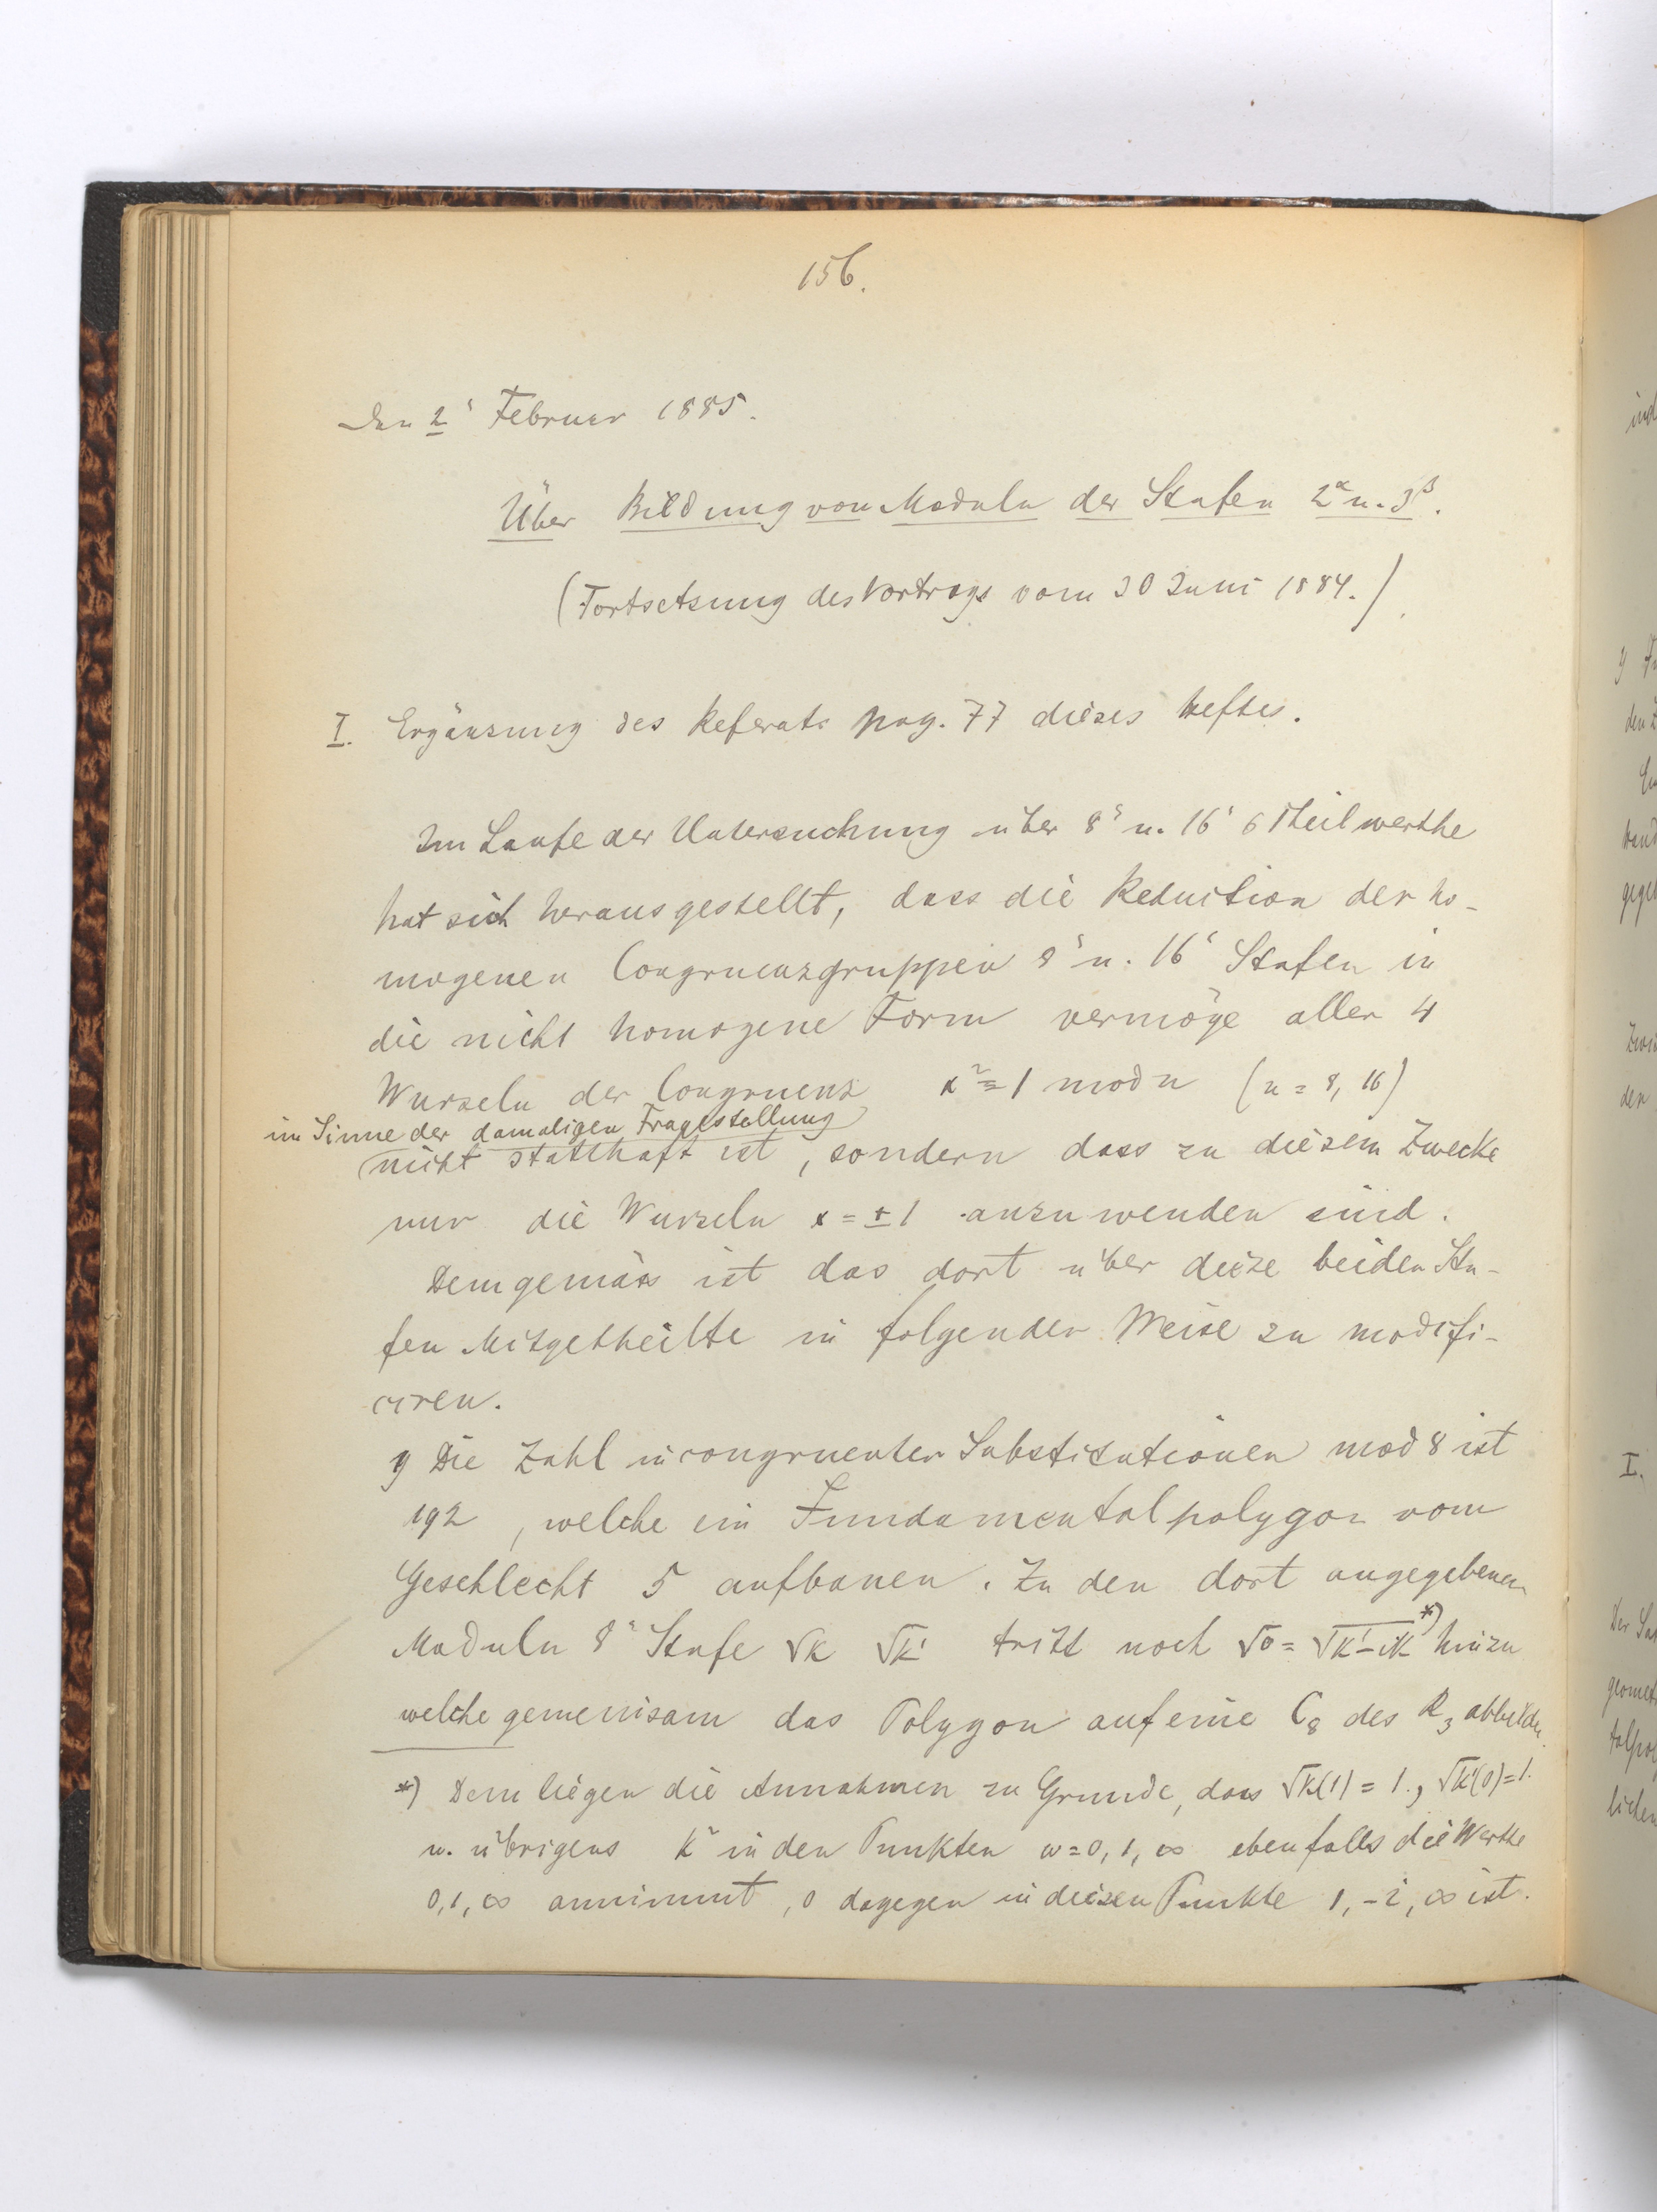 156.
Den 2' Februar 1885.
Über Bildung von Moduln der Stufen 2^α u. 3^β.
(Fortsetzung des Vortrags vom 30 Juni 1884.)
I. Ergänzung des Referats pag. 77 dieses Heftes.
Im Laufe der Untersuchung über 8' u. 16' σ Theilwerthe
hat sich herausgestellt, dass die Reduction der ho-
mogenen Congruenzgruppen 8' u. 16' Stufen in
die nicht homogene Form vermöge aller 4
Wurzeln der Congruenz x² ≡ 1 mod n (n = 8, 16)
im Sinne der damaligen Fragestellung
nicht statthaft ist, sondern dass zu diesem Zwecke
nur die Wurzeln x = ± 1 anzuwenden sind.
Demgemäss ist das dort über diese beiden Stu-
fen Mitgetheilte in folgender Weise zu modifi-
ciren.
1) Die Zahl incongruenter Substitutionen mod 8 ist
192, welche ein Fundamentalpolygon vom
Geschlecht 5 aufbauen. Zu den dort angegebenen
Moduln 8' Stufe √k √k' tritt noch √σ = √k'-ik *) hinzu
welche gemeinsam das Polygon auf eine C₈ des R₃ abbilden.
*) Dem liegen die Annahmen zu Grunde, dass √k(1) = 1., √k'(0)=1.
u. übrigens k² in den Punkten ω=0, 1, ∞ ebenfalls die Werthe
0, 1, ∞ annimmt, σ dagegen in diesen Punkte 1, -i, ∞ ist.